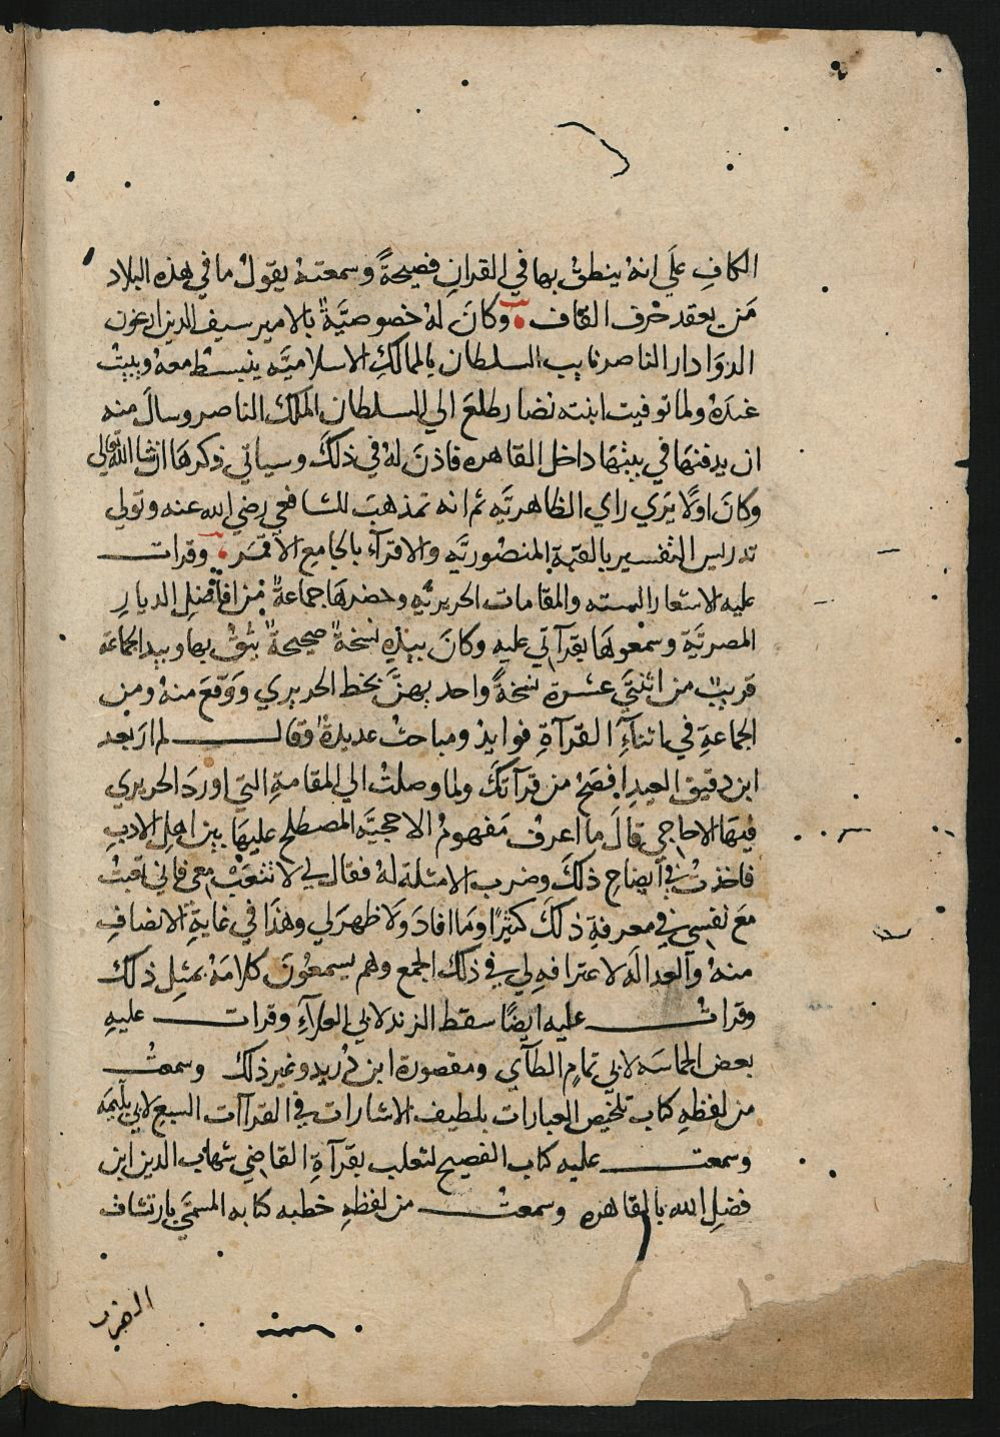 الكافِ علَي انهُ ينطقُ بها في القرانِ فصيحةً وسمعتهُ يقولُ ما في هذه البلاد
مَن يعقد حَرف القاف وكانَ لهُ خصوصيَّةٌ بالامير سيف الدين ارغون
الدوَادار الناصر نايب السلطان بالممالكِ الاسلاميَّه ينبسطُ معهُ ويبيتُ
عندَهُ ولما توفيت ابنته نضار طلعَ الي السلطان الملك الناصر وسالَ منه
ان يدفنهَا في بيتهَا داخل القاهره فاذنَ لهُ في ذلكَ وسياتي ذكرهَا ان شا الله تعالي
وكانَ اولًا يَري راي الظاهريَّه ثم انه تمذهبَ للشافعي رضي الله عنه وتولي
تدريس التفسير بالقبة المنصُوريَّه والاقرآء بالجامع الاقمَر وقرات
عليه الاشعار السته والمقامات الحريريَّه وحضرهَا جماعةٌ من افاضِل الديارِ
المصريَّة وسمعُوهَا بقرآتي عليه وكانَ بيدِه نسخةٌ صحيحةٌ يثقُ بها وبيد الجماعة
قريبٌ من اثنتَي عشرة نسخةً واحد يهنَّ بخط الحريري ووَقعَ منهُ ومن
الجماعةِ في اثناءِ القرآةِ فوايدُ ومباحثُ عديدةٌ وقال لم ار بعد
ابن دقيق العيد افصَحُ من قرآتكَ ولما وصلتُ الي المقامةِ التي اوردَ الحريري
فيهَا الاحاجي قالَ ما اعرفُ مَفهومُ الاحجيَّه المصطلح عليهَا بين اهل الادب
فاخذتُ في ايضاحِ ذلكَ وضرب الامثلة لهُ فقال لي لا تتعَبْ معي فاني تعبتُ
معَ نفسي في معرفةِ ذلكَ كثيرًا ومَا افادَ ولَا ظهرَ لي وهذَا في غايةِ الانصافِ
منهُ والعدالَه لاعترافهِ لي في ذلكَ الجمع وهم يسمعُونَ كلامَهُ بمثِل ذلكَ
وقراتُ عليه ايضًا سقط الزند لابي العلآءِ وقرات عليهِ
بعض الحماسَه لابي تمامٍ الطآي ومقصورة ابن دُريد وغير ذلكَ وسمعتُ
من لفظهِ كتاب تلخيص العبارات بلطيف الاشارات في القراآت السبع لابي بلّيمَه
وسمعت عليه كتاب الفصيح لثعلب بقرآةِ القاضي شهاب الدين ابن
فضلِ الله بالقاهره وسمعتُ من لفظهِ خطبه كتابه المسمَّي بارتشاف
الضرب